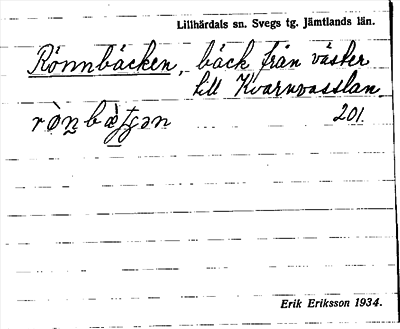 Lillhärdals sn. Svegs tg. Jämtlands län.
Rönnbäcken, bäck från väster
till Kvarnvasslan.
201.
Erik Eriksson 1934.